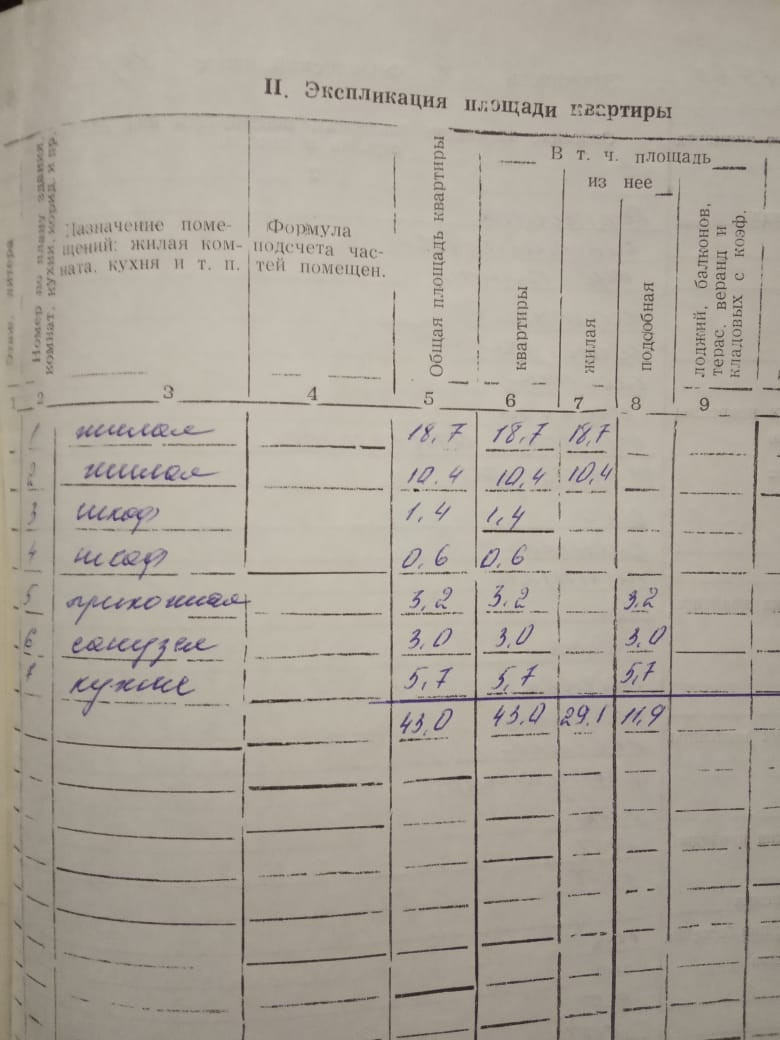 II. Экспликация площади квартиры
Этаж, литера
Номер по плану здания, комнат, кухни, корид. и пр.
Назначение поме-
щений: жилая ком-
ната, кухня и т. п.
Формула
подсчета час-
тей помещен.
Общая площадь квартиры
В т. ч. площадь
из нее
квартиры
жилая
подсобная
лоджий, балконов,
терас, веранд и
кладовых с коэф.
1 2 3 4 5 6 7 8 9
1 жилая 18,7 18,7 18,7
2 жилая 10.4 10,4 10,4
3 шкаф 1,4 1,4
4 шкаф 0,6 0,6
5 прихожая 3,2 3,2 3,2
6 санузел 3,0 3,0 3,0
7 кухня 5,7 5,7 5,7
43,0 43,0 29.1 11,9